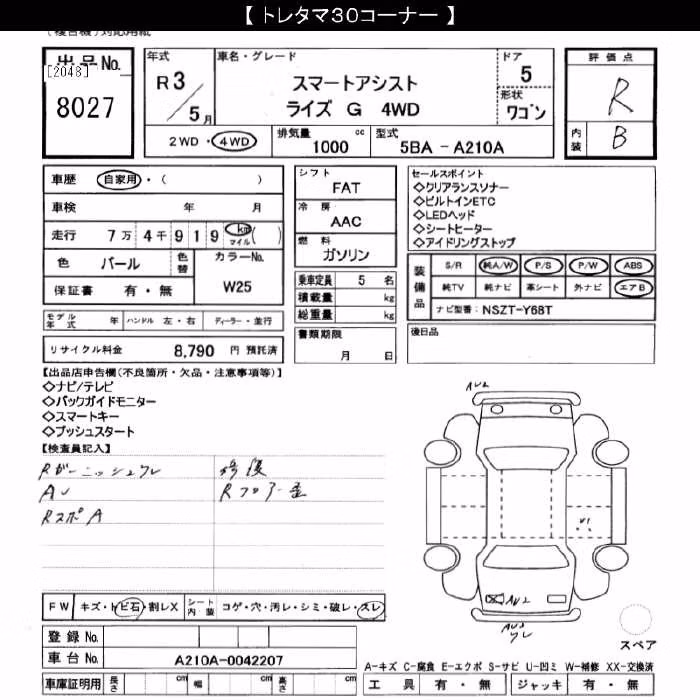 【 トレタマ30コーナー 】
出品No.
[2048]
8027
年式
R 3 / 5 月
車名・グレード
スマートアシスト
ライズ G 4WD
ドア
5
形状
ワゴン
評価点
R
内装
B
2WD ・ 4WD
排気量
1000 cc
型式
5BA - A210A
車歴 自家用・( )
車検 年 月
走行 7万 4千 9 1 9 km マイル ( )
色 パール 色替 カラーNo. W25
保証書 有・無
モデル年式 年 ハンドル 左・右 ディーラー・並行
リサイクル料金 8,790 円 預託済
シフト
FAT
冷房
AAC
燃料
ガソリン
乗車定員 5 名
積載量 kg
総重量 kg
書類期限
月 日
セールスポイント
◇クリアランスソナー
◇ビルトインETC
◇LEDヘッド
◇シートヒーター
◇アイドリングストップ
装備品
S/R 純A/W P/S P/W ABS
純TV 純ナビ 革シート 外ナビ エアB
ナビ型番: NSZT-Y68T
後日品
【出品店申告欄(不良箇所・欠品・注意事項等)】
◇ナビ/テレビ
◇バックガイドモニター
◇スマートキー
◇プッシュスタート
【検査員記入】
Rガーニッシュワレ
AU
RスポA
修復
Rフロアー歪
AU2
U1
AU2
AU3
ワレ
FW キズ・トビ石・割レX シート内装 コゲ・穴・汚レ・シミ・破レ・スレ
登録 No.
車台 No. A210A-0042207
車庫証明用 長さ cm 幅 cm 高さ cm
スペア
A-キズ C-腐食 E-エクボ S-サビ U-凹ミ W-補修 XX-交換済
工具 有・無 ジャッキ 有・無